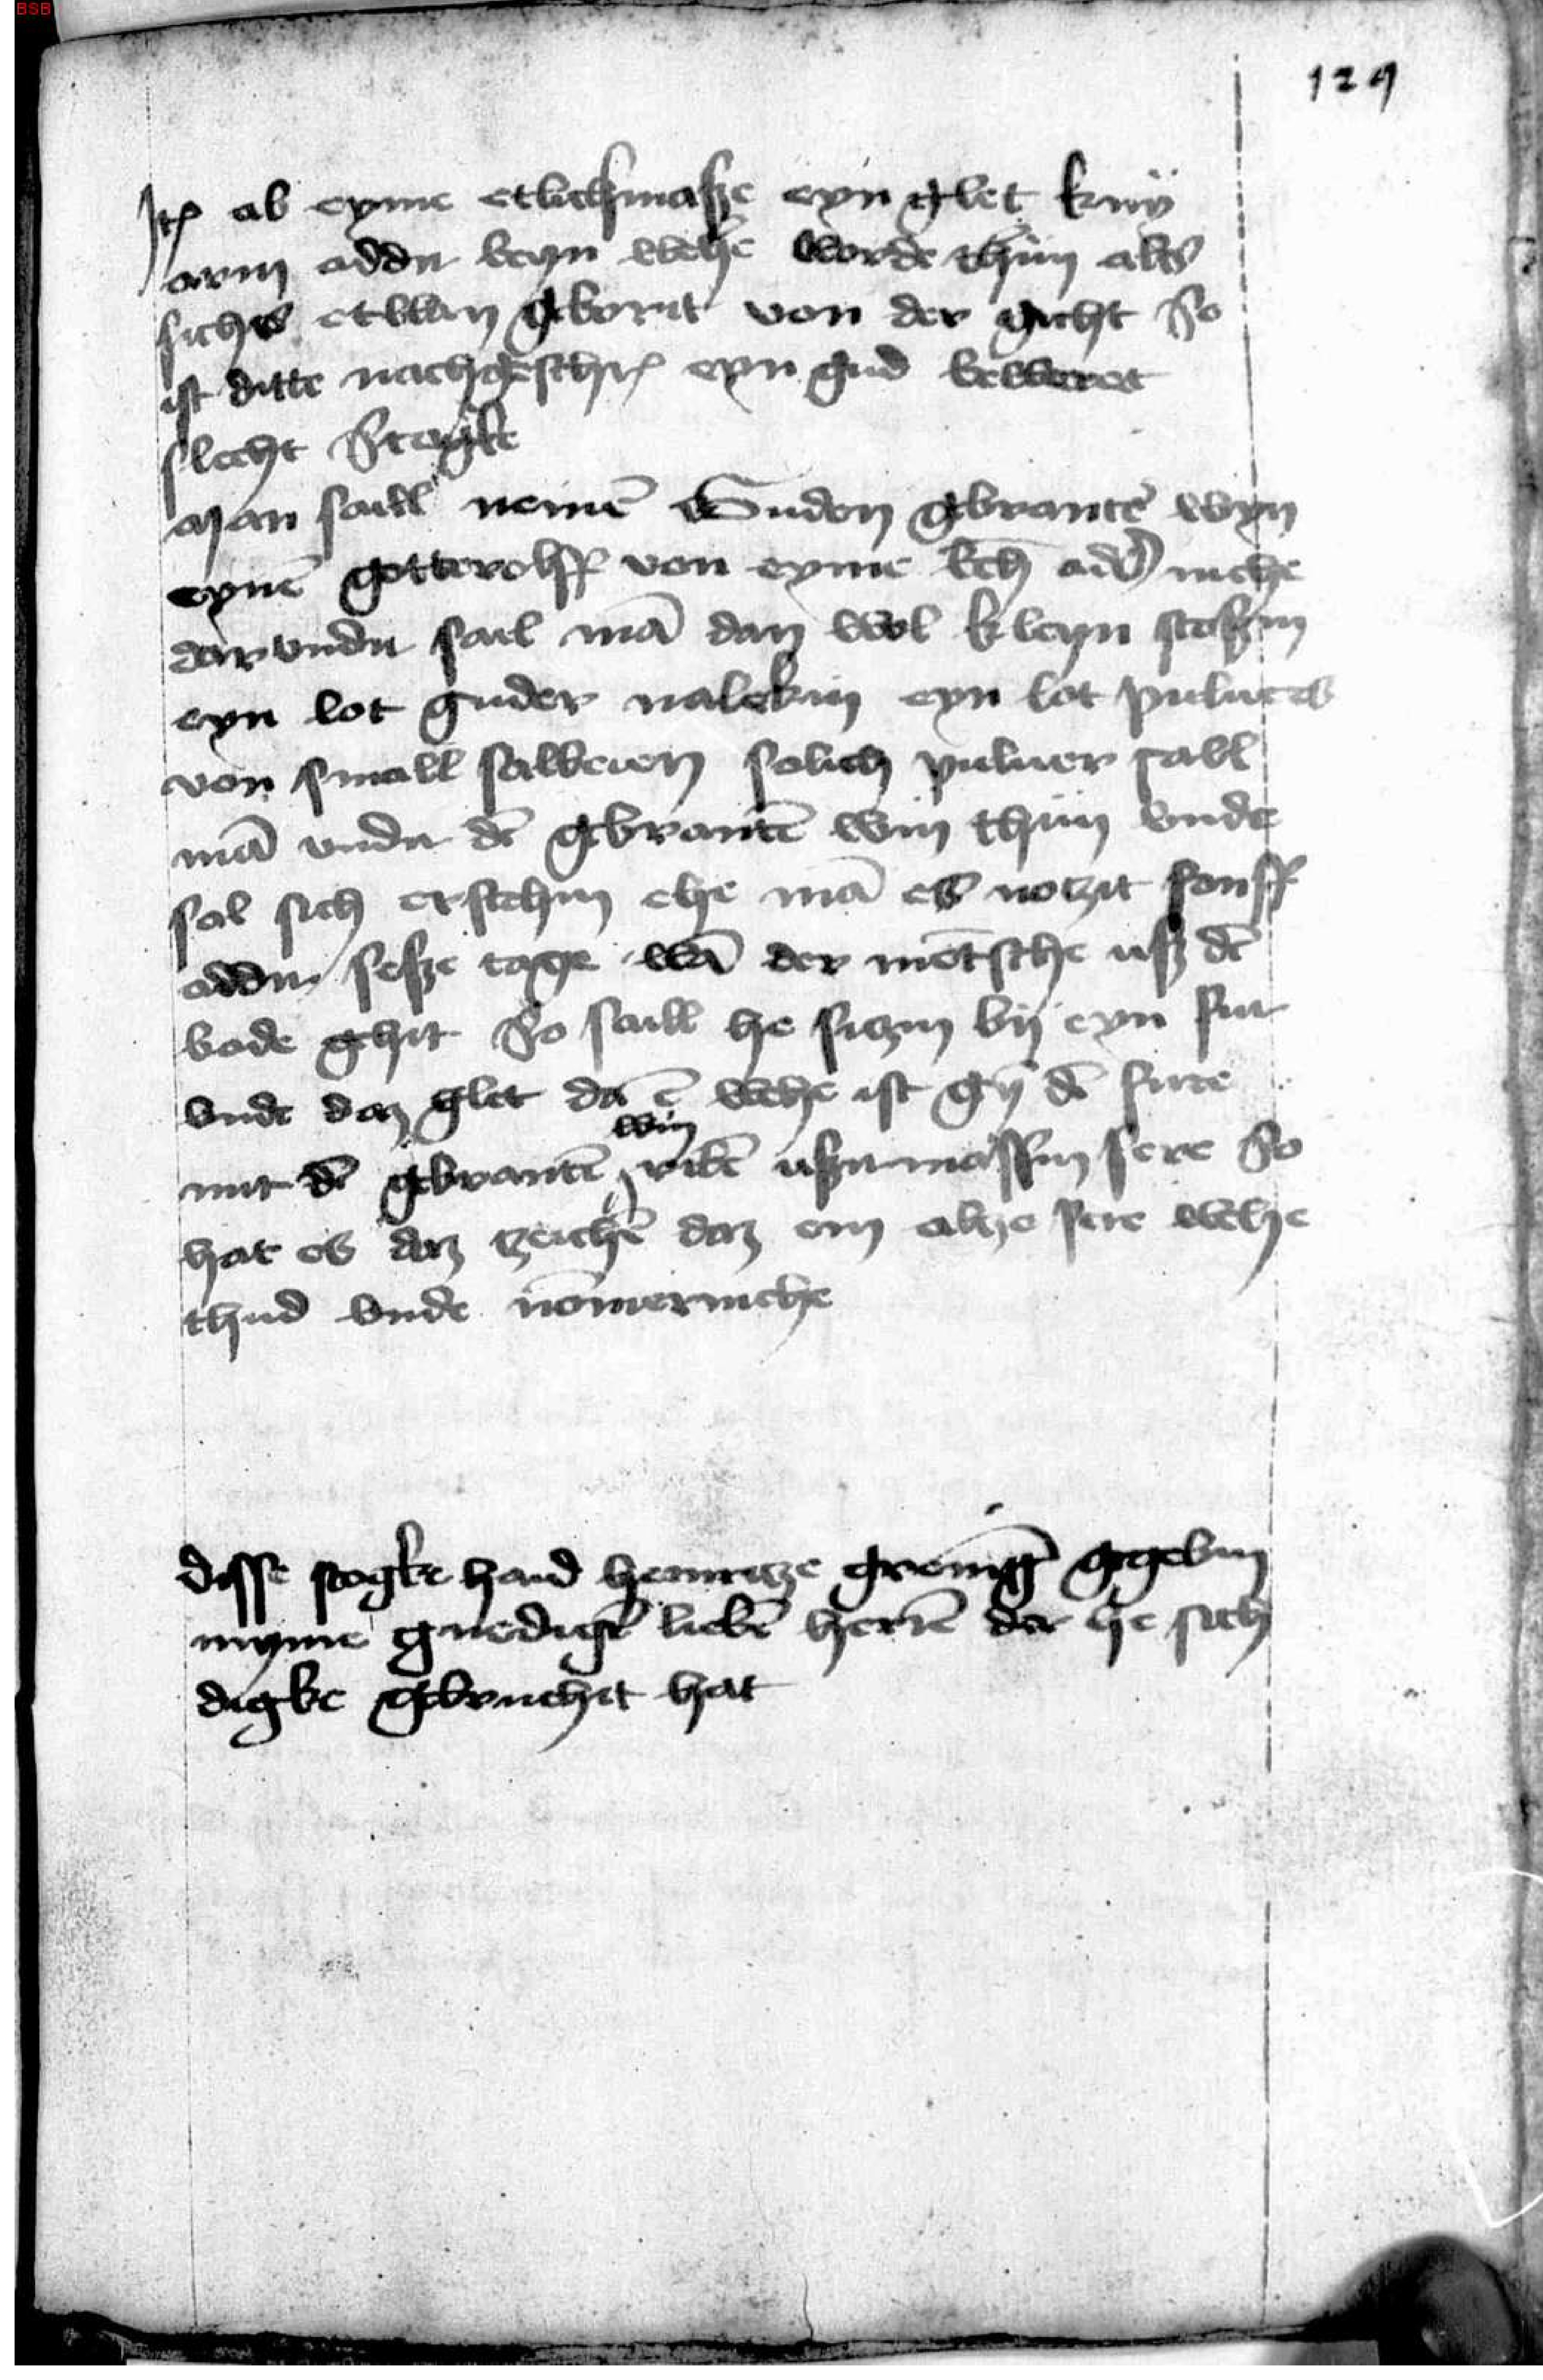 129
Itē ab eyme etlichmasze eyn glet knÿ
arm adder beyn wehe worde thun alss
sichs etwan geborit von der gicht So
ist ditte nachgeschrē eyn gud beweret
slecht Stugke
Man sall nemē Guden gebrantē wyn
eynē gotterolff von eyme add mehe
darunder sal mā dan wol kleyn stoszin
eyn lot guder nalekin eyn lot puluers
von small salbeien solich puluer sall
mā under dē gebrantē win thun vnde
sal sich erstehin ehe mā es notzit fonff
adder sesze tage wā der mētsche usz dē
bade gehit So sall he sitzin bij eyn fur
vnde daz glet da ē wehe ist gein dē fure
win
mit dē gebrantē ribē uszermassin sere So
hat es daz zeichē daz em alze sere wehe
thud vnde nōmermehe
disse stogke haid henritze gegebin
myme gnedigē liebē herrē der he sich
digke gebruchit hat